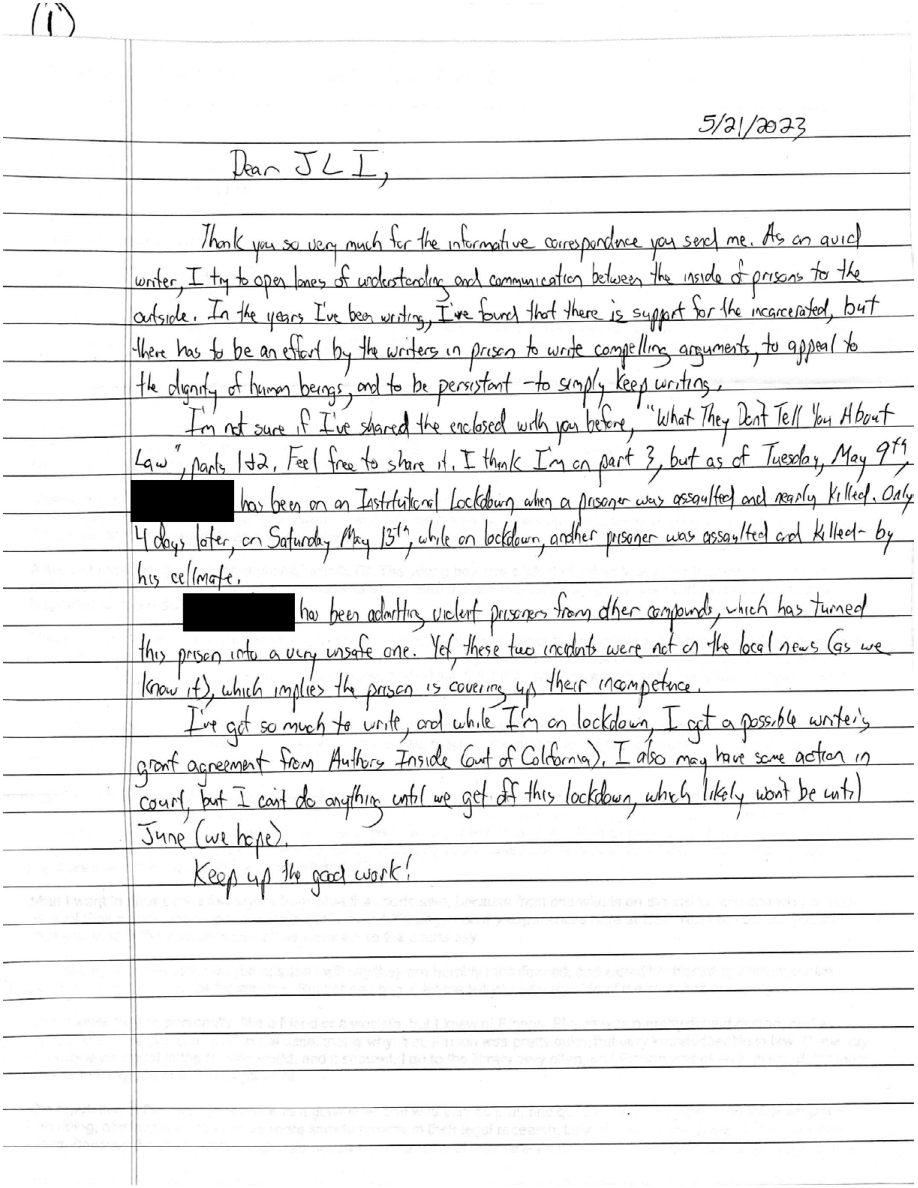 (1)
5/21/2023
Dear JLI,
Thank you so very much for the informative correspondence you send me. As an avid
writer, I try to open lanes of understanding and communication between the inside of prisons to the
outside. In the years I've been writing, I've found that there is support for the incarcerated, but
there has to be an effort by the writers in prison to write compelling arguments, to appeal to
the dignity of human beings, and to be persistant - to simply keep writing.
I'm not sure if I've shared the enclosed with you before, "What They Don't Tell You About
Law", parts 1&2. Feel free to share it. I think I'm on part 3, but as of Tuesday, May 9th,
has been on an Institutional Lockdown when a prisoner was assaulted and nearly killed. Only
4 days later, on Saturday May 13th, while on lockdown, another prisoner was assaulted and killed - by
his cellmate.
has been admitting violent prisoners from other compounds, which has turned
this prison into a very unsafe one. Yet, these two incidents were not on the local news (as we
know it), which implies the prison is covering up their incompetence.
I've got so much to write, and while I'm on lockdown, I got a possible writer's
grant agreement from Authors Inside (out of California). I also may have some action in
court, but I can't do anything until we get off this lockdown, which likely won't be until
June (we hope).
Keep up the good work!